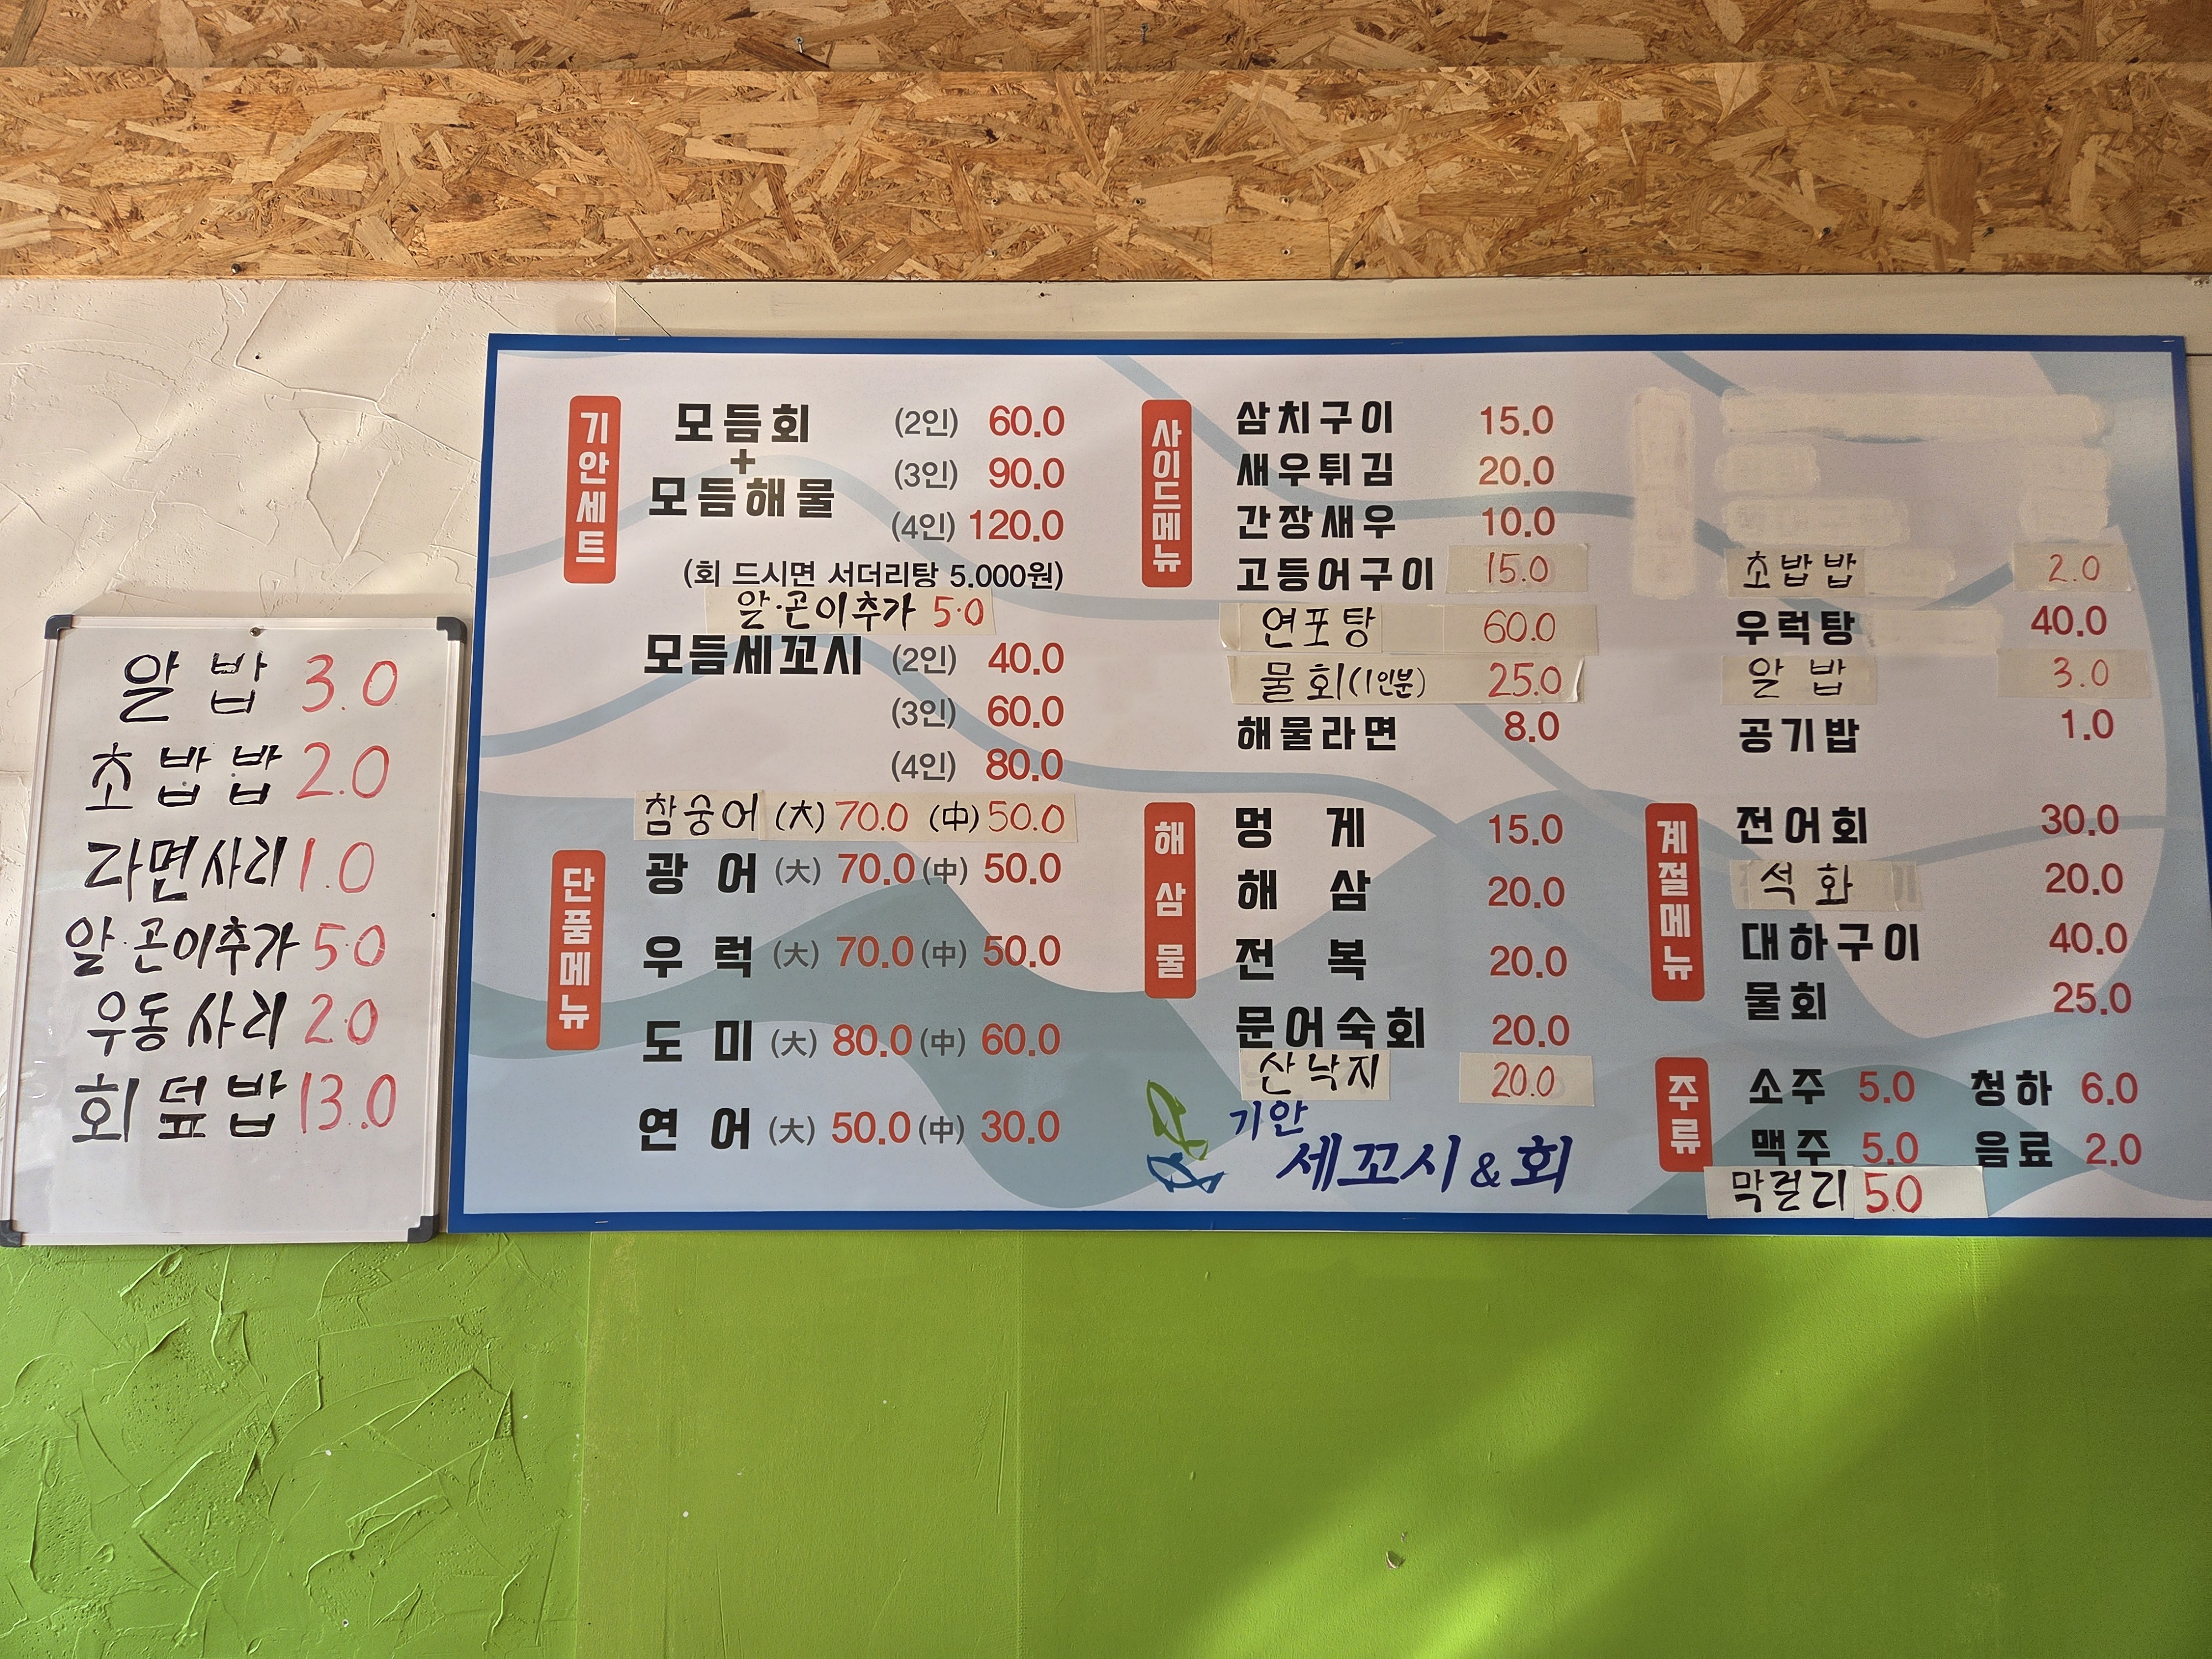 알밥 3.0
초밥밥 2.0
라면사리 1.0
알·곤이추가 5.0
우동사리 2.0
회덮밥 13.0
기안세트
모듬회 (2인) 60.0
+
(3인) 90.0
모듬해물
(4인) 120.0
(회 드시면 서더리탕 5.000원)
알·곤이추가 5.0
모듬세꼬시 (2인) 40.0
(3인) 60.0
(4인) 80.0
참숭어 (大) 70.0 (中) 50.0
단품메뉴
광어 (大) 70.0 (中) 50.0
우럭 (大) 70.0 (中) 50.0
도미 (大) 80.0 (中) 60.0
연어 (大) 50.0 (中) 30.0
사이드메뉴
삼치구이 15.0
새우튀김 20.0
간장새우 10.0
고등어구이 15.0
연포탕 60.0
물회(1인분) 25.0
해물라면 8.0
해삼물
멍게 15.0
해삼 20.0
전복 20.0
문어숙회 20.0
산낙지 20.0
기안
세꼬시&회
초밥밥 2.0
우럭탕 40.0
알밥 3.0
공기밥 1.0
계절메뉴
전어회 30.0
석화 20.0
대하구이 40.0
물회 25.0
주류
소주 5.0 청하 6.0
맥주 5.0 음료 2.0
막걸리 5.0